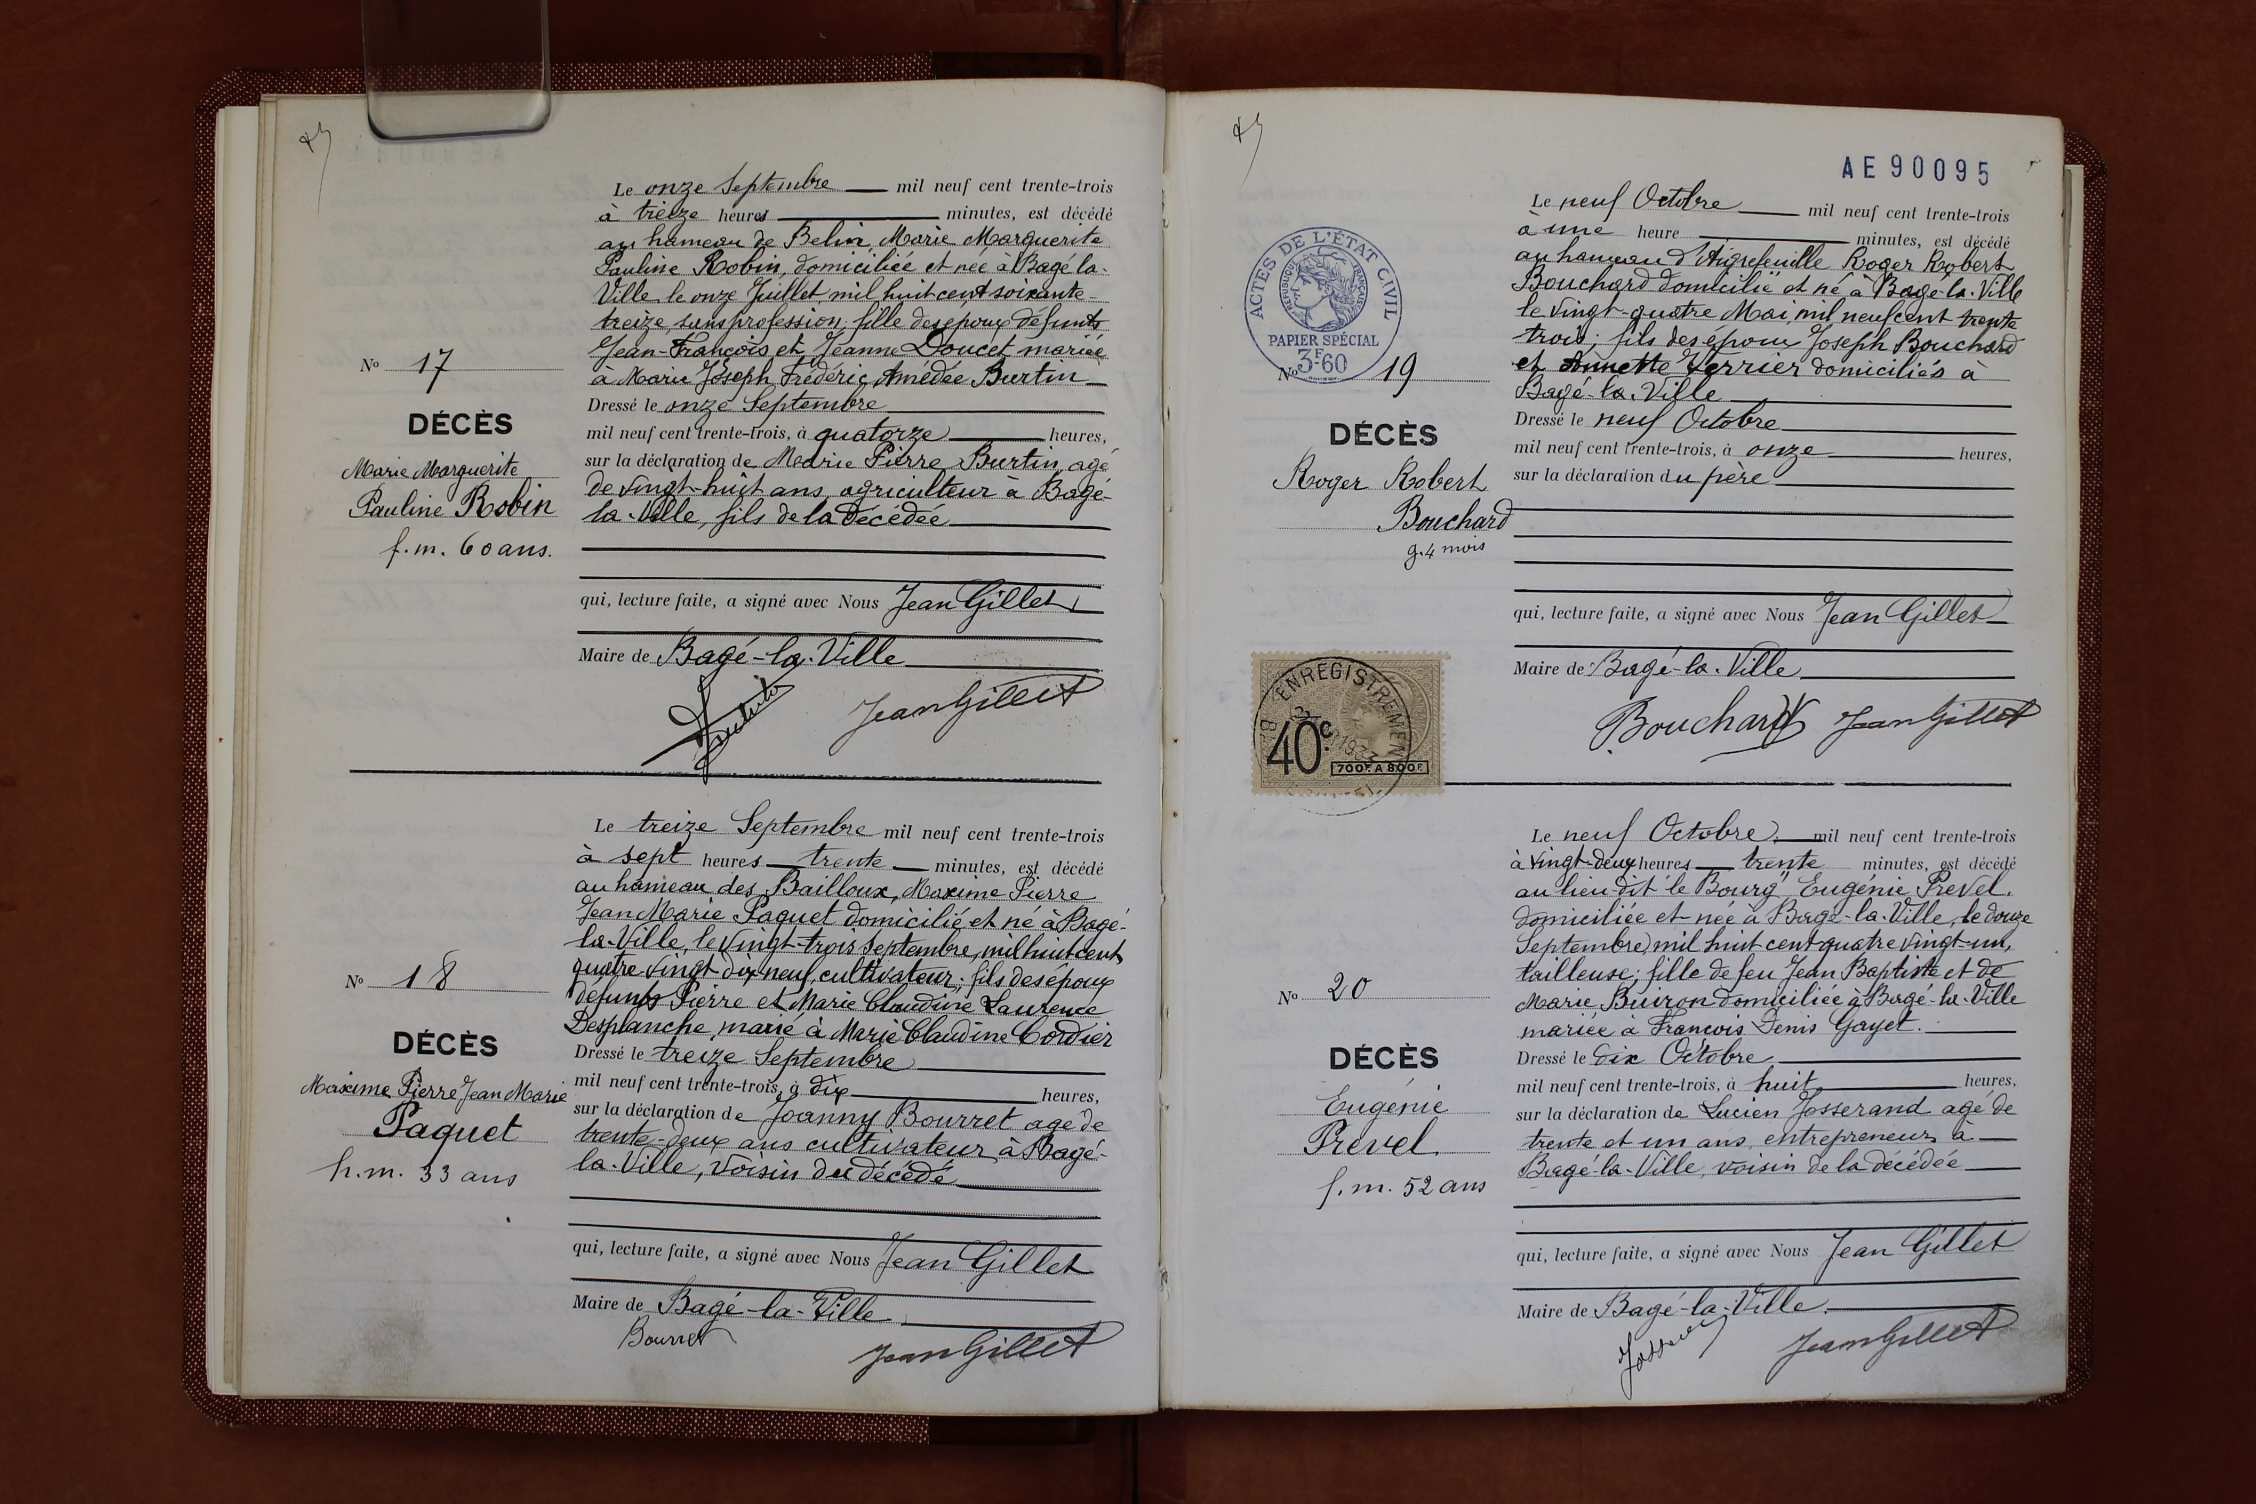 Le onze Septembre mil neuf cent trente-trois
à treize heures minutes, est décédé
au hameau de Belin, Marie Marguerite
Pauline Robin, domiciliée et née à Bagé-la-
Ville le onze Juillet mil huit cent soixante-
treize, sans profession; fille des époux défunts
Jean-François et Jeanne Doucet mariée
à Marie Joseph Frédéric Amédée Burtin
Nº 17
DÉCÈS
Marie Marguerite
Pauline Robin
f. m. 60 ans.
Dressé le onze Septembre
mil neuf cent trente-trois, à quatorze heures,
sur la déclaration de Marie Pierre Burtin, agé
de vingt-huit ans, agriculteur à Bagé-
la-Ville, fils de la décédée
qui, lecture faite, a signé avec Nous Jean Gillet,
Maire de Bagé-la-Ville
Jean Gillet
Le treize Septembre mil neuf cent trente-trois
à sept heures trente minutes, est décédé
au hameau des Bailloux, Maxime Pierre
Jean Marie Paquet domicilié et né à Bagé-
la-Ville, le vingt-trois septembre, mil huit cent
quatre-vingt dix neuf, cultivateur; fils des époux
défunts Pierre et Marie Claudine Laurence
Desplanche, marié à Marie Claudine Cordier
Nº 18
DÉCÈS
Maxime Pierre Jean Marie
Paquet
h. m. 33 ans
Dressé le treize Septembre
mil neuf cent trente-trois, à dix heures,
sur la déclaration de Joanny Bourret agé de
trente-deux ans cultivateur à Bagé-
la-Ville, voisin du décédé
qui, lecture faite, a signé avec Nous Jean Gillet
Maire de Bagé-la-Ville
Bourret Jean Gillet
AE 90095
Le neuf Octobre mil neuf cent trente-trois
à une heure minutes, est décédé
au hameau d'Aigrefeuille Roger Robert
Bouchard domicilié et né à Bagé-la-Ville
le vingt-quatre Mai, mil neuf cent trente
trois; fils des époux Joseph Bouchard
et Annette Verrier domiciliés à
Bagé-la-Ville
ACTES DE L'ÉTAT CIVIL
RÉPUBLIQUE FRANÇAISE
PAPIER SPÉCIAL
3F60
Nº 19
DÉCÈS
Roger Robert
Bouchard
g. 4 mois
Dressé le neuf Octobre
mil neuf cent trente-trois, à onze heures,
sur la déclaration du père
qui, lecture faite, a signé avec Nous Jean Gillet
Maire de Bagé-la-Ville
Bouchard Jean Gillet
ENREGISTREMENT
40c
700F. A 800F.
Le neuf Octobre mil neuf cent trente-trois
à vingt-deux heures trente minutes, est décédé
au lieu-dit "le Bourg" Eugénie Prevel.
domiciliée et née à Bagé-la-Ville, le douze
Septembre, mil huit cent quatre vingt-un,
tailleuse; fille de feu Jean Baptiste et de
Marie Buiron domiciliée à Bagé-la-Ville
mariée à François Denis Gayet.
Nº 20
DÉCÈS
Eugénie
Prevel.
f. m. 52 ans
Dressé le dix Octobre
mil neuf cent trente-trois, à huit heures,
sur la déclaration de Lucien Josserand agé de
trente et un ans, entrepreneur à
Bagé-la-Ville, voisin de la décédée
qui, lecture faite, a signé avec Nous Jean Gillet
Maire de Bagé-la-Ville.
Jean Gillet